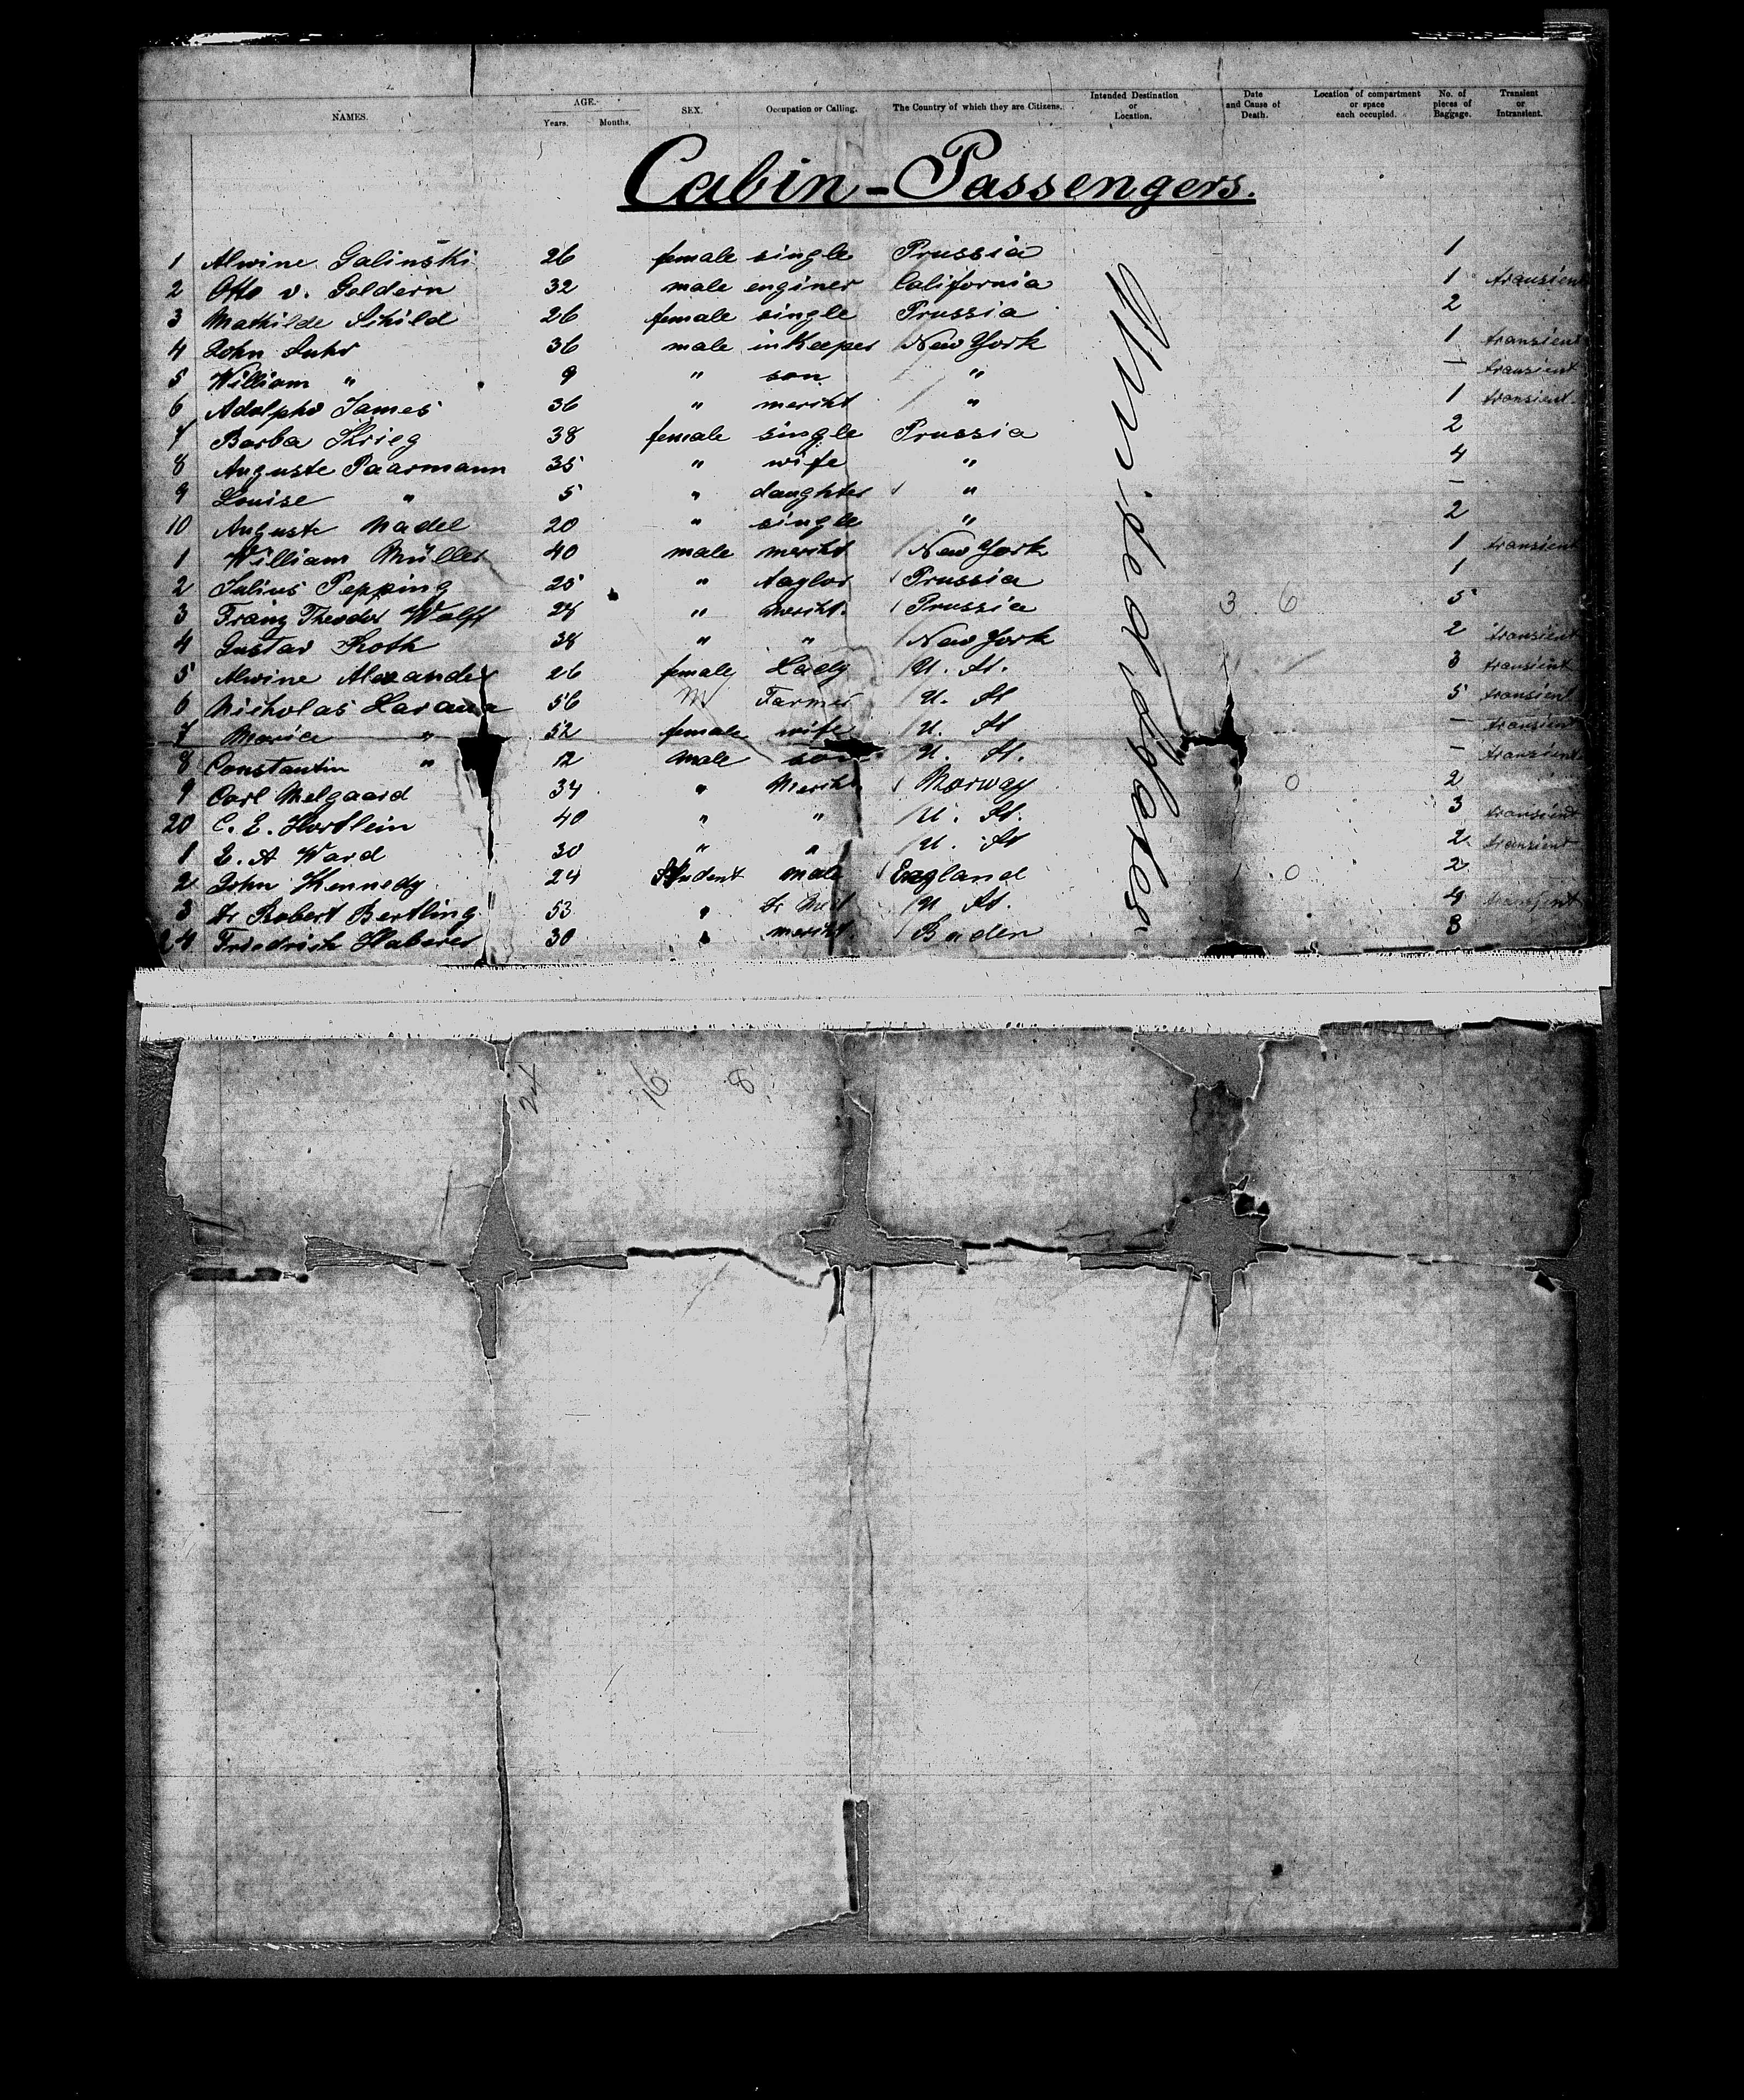 NAMES. AGE. Years. Months. SEX. Occupation or Calling. The Country of which they are Citizens. Intended Destination or Location. Date and Cause of Death. Location of compartment or space each occupied. No. of pieces of Baggage. Transient or Intransient.
Cabin-Passengers.
1 Alwine Galinski 26 female single Prussia 1
2 Otto v. Geldern 32 male enginer California 1 transient
3 Mathilde Schild 26 female single Prussia 2
4 John Luhr 36 male inKeeper New York 1 transient
5 William " 9 " son " — transient
6 Adolpho James 36 " mercht " 1 transient
7 Barba Krieg 38 female single Prussia 2
8 Auguste Paarmann 35 " wife " 4
9 Louise " 5 " daughter " —
10 Auguste Nadel 20 " single " 2
1 William Müller 40 male mercht New York 1 transient
2 Julius Pepping 25 " taylor Prussia 1
3 Franz Theodor Wolff 28 " mercht. Prussia 3 6 5
4 Gustav Roth 38 " " New York 2 transient
5 Alwine Alexander 26 female Lady U. St. 3 transient
6 Nicholas 56 M Farmer U. St 5 transient
7 Maria " 52 female wife U. St — transient
8 Constantin " 12 male son U. St. — transient
9 Carl Melgaard 34 " Mercht Norway 0 2
20 C. E. Hortlein 40 " " U. St. 3 transient
1 E. A Ward 30 " " U. St 2 transient
2 John Kennedy 24 Student male England 0 2
3 Dr Robert Bertling 53 " Dr U St. 4 transient
24 Friedrich Haberer 30 " mercht Baden 8
24 16 8